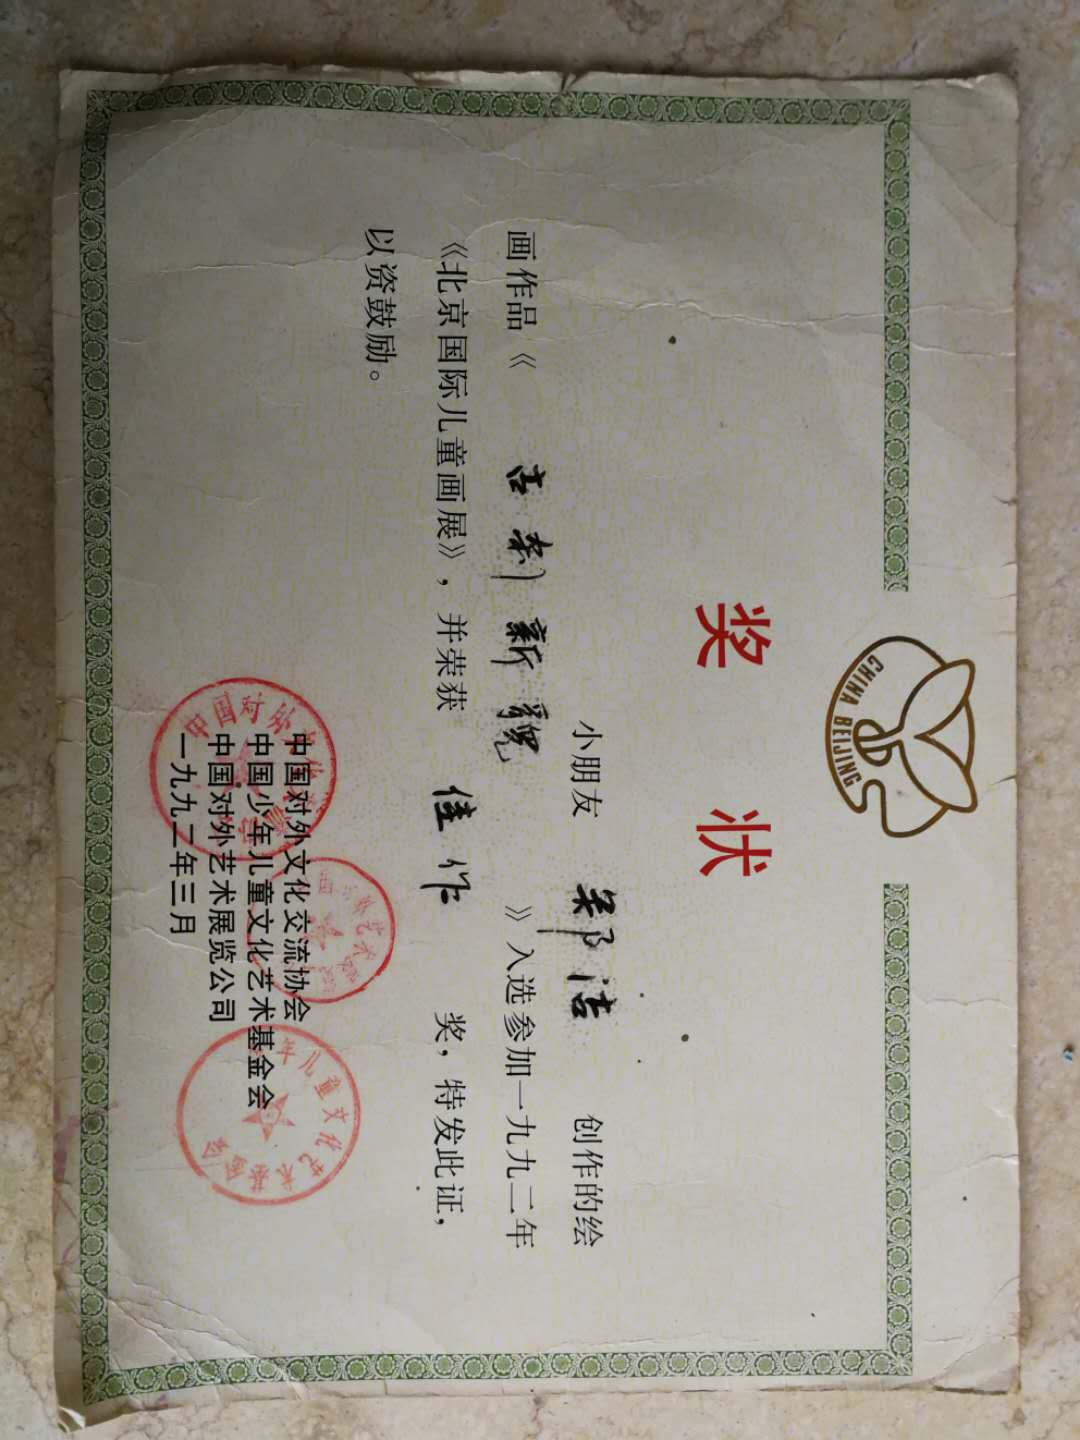 CHINA BEIJING
奖状
小朋友 郑洁 创作的绘
画作品《古刹新貌》入选参加一九九二年
《北京国际儿童画展》，并荣获 佳作 奖，特发此证，
以资鼓励。
中国对外文化交流协会
中国少年儿童文化艺术基金会
中国对外艺术展览公司
一九九二年三月
中国对外
年儿童文化艺术基金会